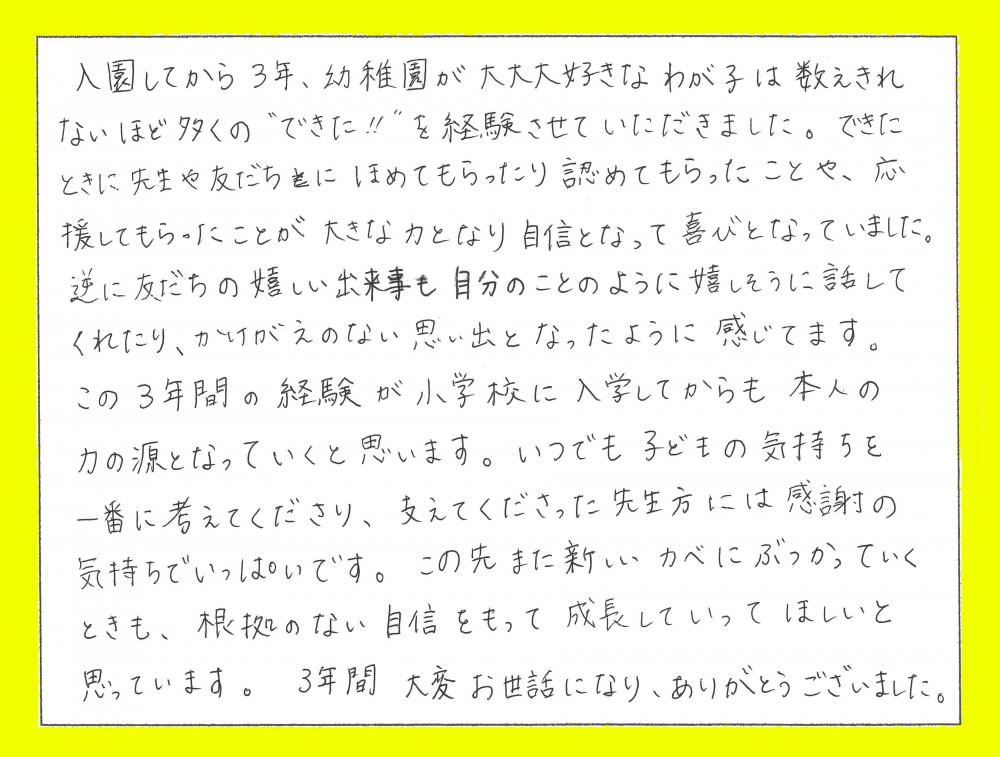 入園してから3年、幼稚園が大大大好きなわが子は数えきれ
ないほど多くの"できた!!"を経験させていただきました。できた
ときに先生や友だちにほめてもらったり認めてもらったことや、応
援してもらったことが大きな力となり自信となって喜びとなっていました。
逆に友だちの嬉しい出来事も自分のことのように嬉しそうに話して
くれたり、かけがえのない思い出となったように感じてます。
この3年間の経験が小学校に入学してからも本人の
力の源となっていくと思います。いつでも子どもの気持ちを
一番に考えてくださり、支えてくださった先生方には感謝の
気持ちでいっぱいです。この先また新しいカベにぶつかっていく
ときも、根拠のない自信をもって成長していってほしいと
思っています。 3年間大変お世話になり、ありがとうございました。